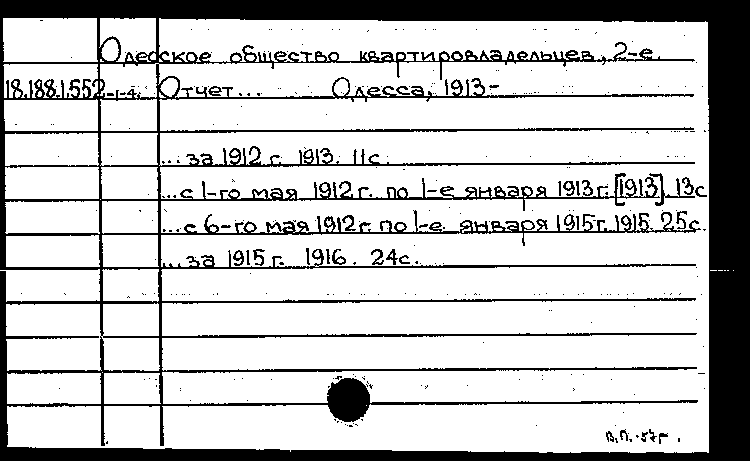 Одесское общество квартировладельцев, 2-е.
18.188.1.552-1-4. Отчет... Одесса, 1913-
...за 1912 г. 1913. 11с.
...с 1-го мая 1912 г. по 1-е января 1913 г. [1913]. 13с
...с 6-го мая 1912 г. по 1-е января 1915 г. 1915. 25с.
...за 1915 г. 1916. 24с.
В.П.-57г.